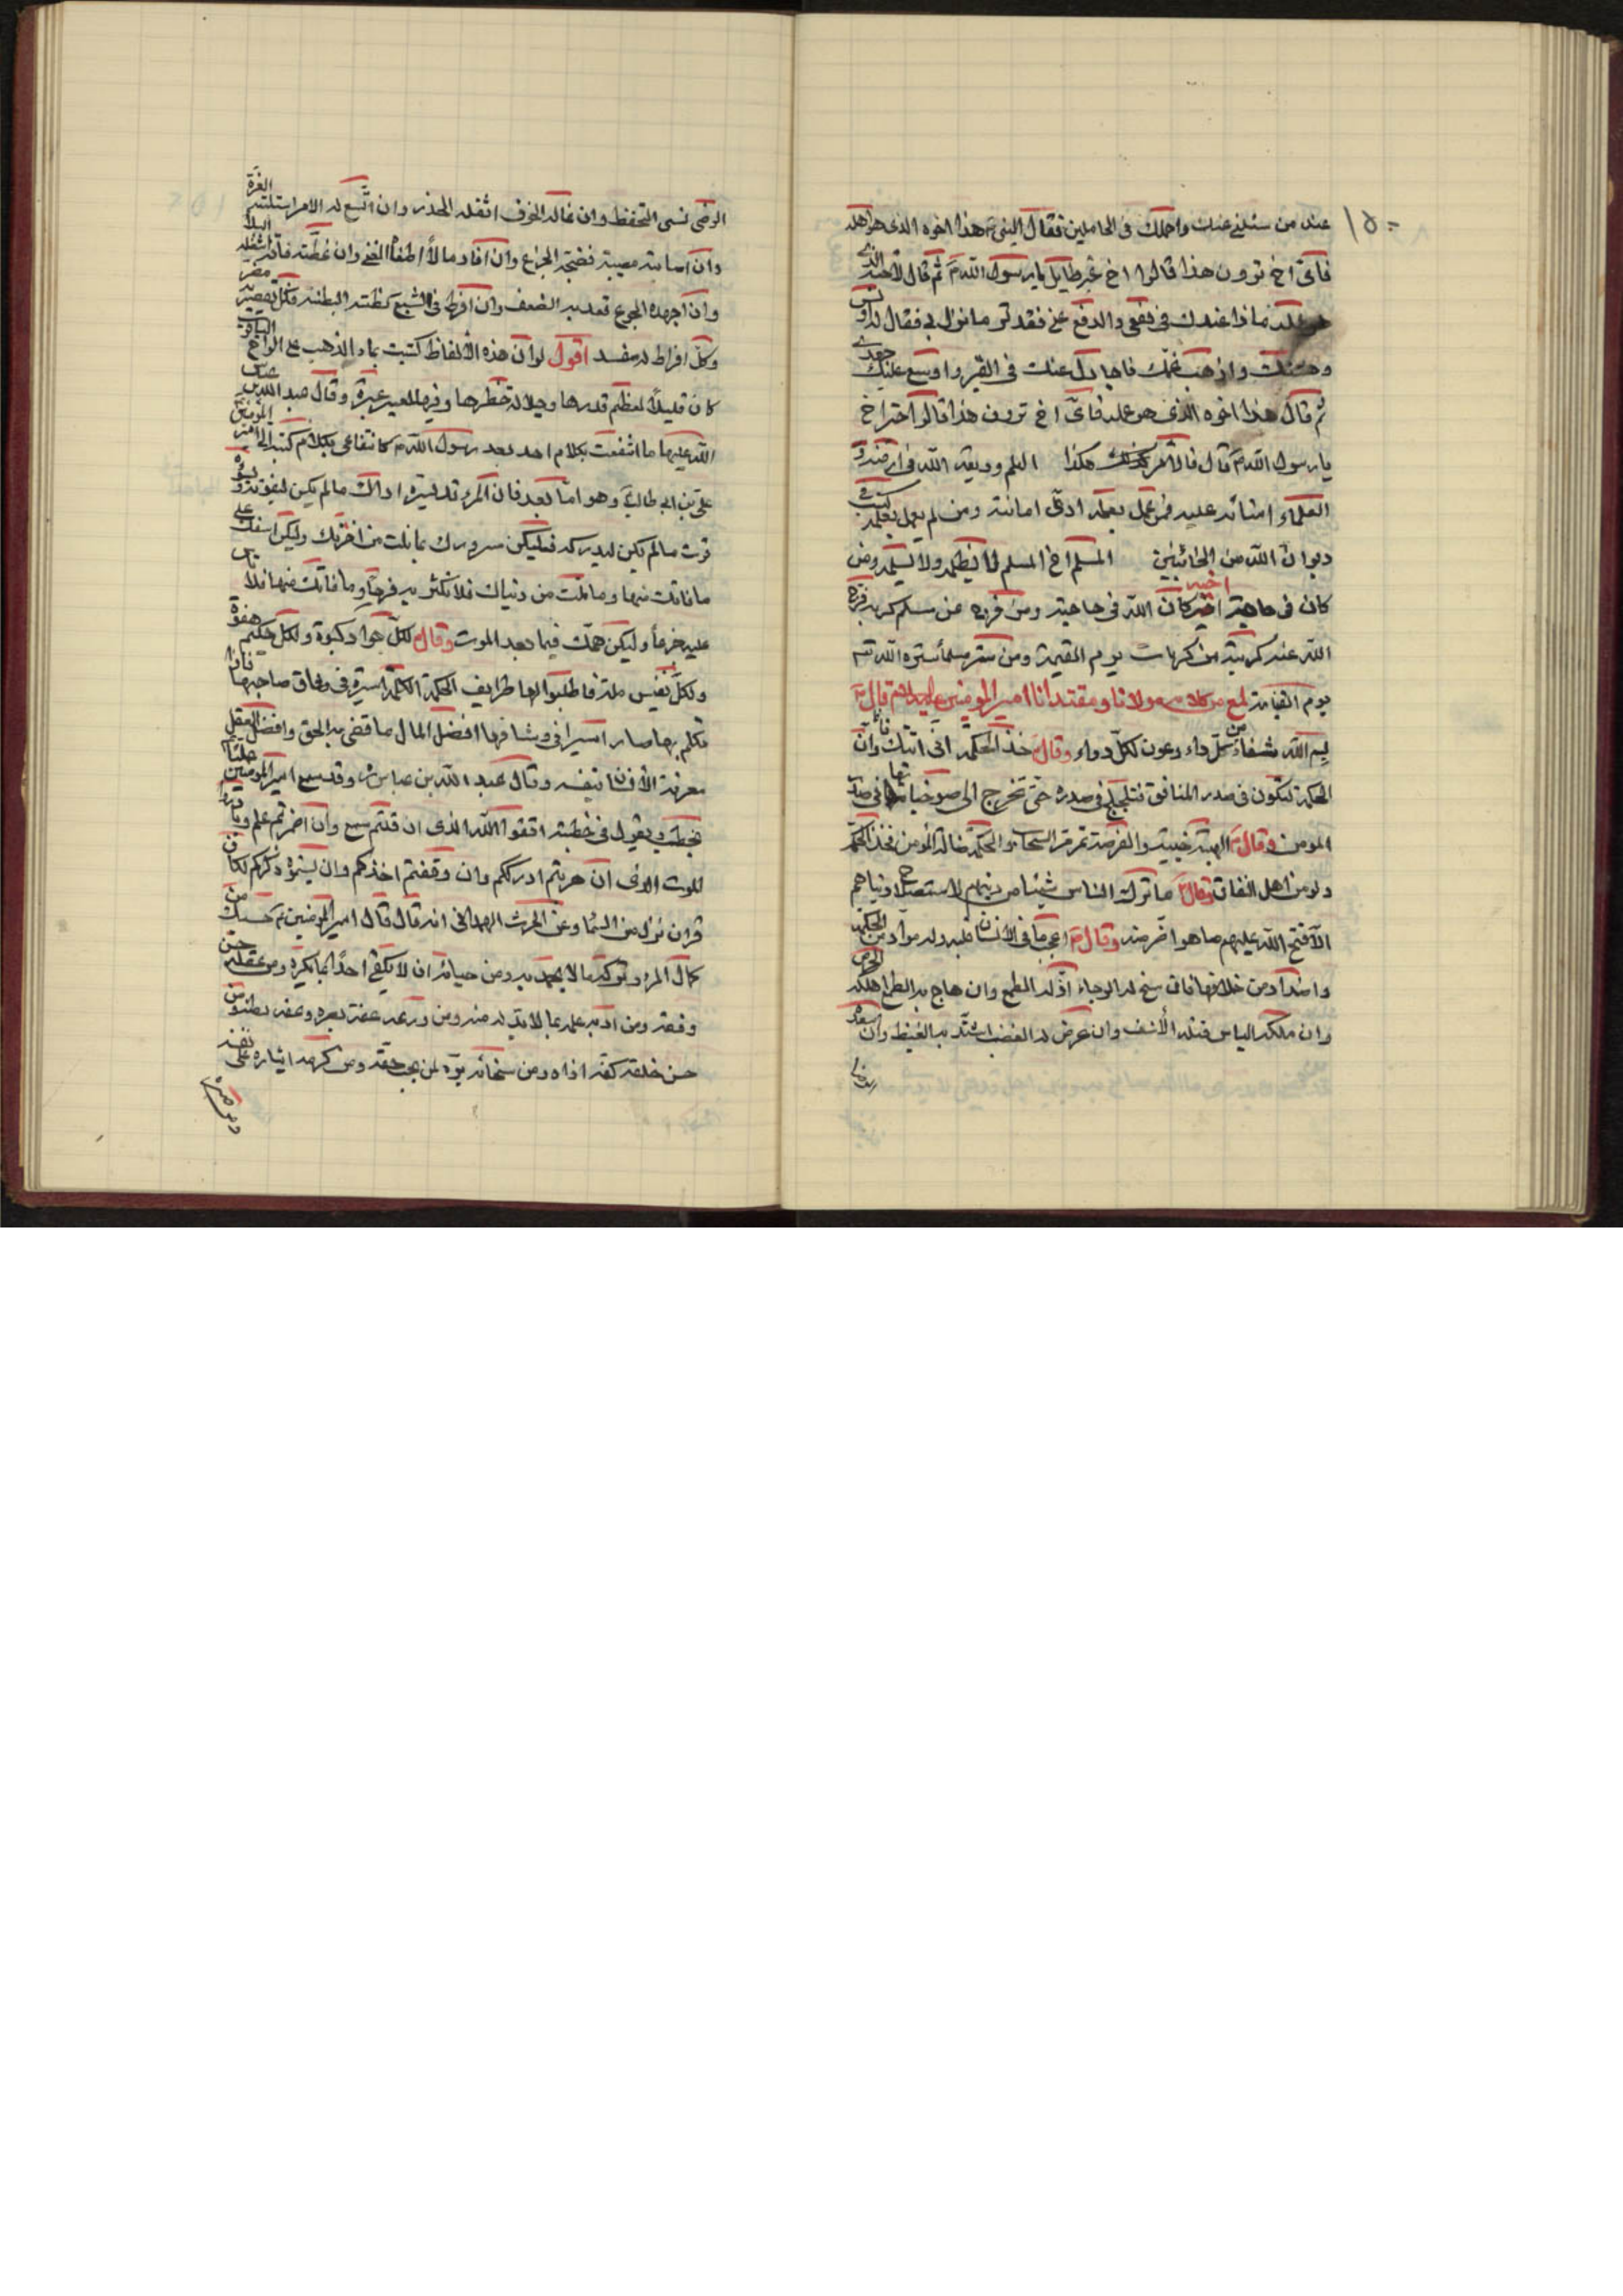 ١٥٠
عند من سئلنى عنك واحملك فى الحاملين فقال النبى هذا اخوه الذى هو اهله
فاىّ اخ ترون هذا قالوا اخ غير طايل يا رسول الله ثم قال لاخيه الذى
هو عمله ماذا عندك فى نفعى والدفع عنى فقد ترى ما نزل بى فقال له اونس
وحشتك واذهب غمّك فاجادل عنك فى القبر واوسع عليك جهدى
ثم قال هذا اخوه الذى هو عمله فاىّ اخ ترون هذا قالوا خير اخ
يا رسول الله قال فالامر هكذا العلم وديعة الله فى ارضه و
العلماء امنائه عليه فمن عمل بعلمه ادّى امانته ومن لم يعمل بعلمه كتب فى
ديوان الله من الخائنين المسلم اخ المسلم لا يظلمه ولا يسلمه ومن
كان فى حاجة اخيه كان الله فى حاجته ومن فرج عن مسلم كربة فرج
الله عنه كربة من كربات يوم القيمة ومن ستر مسلما ستره الله
يوم القيامة لمع من كلام مولانا ومقتدانا امير المومنين عليه السلام قال
بسم الله شفاء من كلّ داء وعون لكلّ دواء وقال خذ الحكمة انّى اتتك فانّ
الحكمة تكون فى صدر المنافق فتلجلج فى صدره حتى تخرج الى صواحباتها فى صدر
المومن وقال الهيبة خيبة والفرصة تمر مرّ السحاب والحكمة ضالة المومن فخذ الحكمة
ولو من اهل النفاق وقال ما ترك الناس شيئا من دينهم لاستصلاح دنياهم
الّا فتح الله عليهم ما هو اضرّ منه وقال اعجب ما فى الانسان قلبه وله موادّ من الحكمة
واضداد من خلافها فان سنح له الرجاء اذلّه الطمع وان هاج به الطمع اهلكه الحرص
وان ملكه الياس قتله الأسف وان عرض له الغضب اشتدّ به الغيظ وان اسعد
بالرضا
الرضى نسى التحفظ وان غاله الخوف اثقله الحذر وان اتّسع له الامر استلبته الغرة
وان اصابته مصيبة فضحه الجزع وان افاد مالاً اطغاه الغنى وان عضّته فاقة شغله البلاء
وان اجهده الجوع قعد به الضعف وان افرط فى الشبع كظّته البطنة فكلّ تقصير به مضرّ
وكلّ افراط له مفسد اقول لو انّ هذه الألفاظ كتبت بماء الذهب على الواح الياقوت
كان قليلاً لعظم قدرها وجلالة خطرها وفيها للعبيد عبرة وقال عبد الله بن عباس
الله عليهما ما انتفعت بكلام احد بعد رسول الله كانتفاعى بكلام كتبه الىّ امير المومنين
على بن ابى طالب وهو امّا بعد فان المرء قد يسّره ادراك ما لم يكن ليفوته ويسوه
فوت ما لم يكن ليدركه فليكن سرورك بما نلت من اخرتك وليكن اسفك على
ما فاتك منها وما نلت من دنياك فلا تكثر به فرحاً وما فاتك منها فلا تاس
عليه جزعاً وليكن همّك فيما بعد الموت وقال لكلّ جواد كبوة ولكل حكيم هفوة
ولكلّ نفس ملة فاطلبوا لها طرايف الحكمة الكلمة اسيرة فى وثاق صاحبها فاذا
تكلم بها صار اسيرا فى وثاقها افضل المال ما قضى به الحق وافضل العقل
معرفة الأنسان نفسه وقال عبد الله بن عباس وقد سمع امير المومنين
يخطب ويقول فى خطبته اتقوا الله الذى ان قلتم سمع وان اضمرتم علم وبادروا
الموت الذى ان هربتم ادرككم وان وقفتم اخذكم وان نسيتموه ذكركم لكان
قران نزل من السّماء وعن الحرث الهمدانى انه قال قال امير المومنين حسبك من
كمال المرء تركه ما لا يجمل به ومن حيائه ان لا يلقى احداً بما يكره ومن عقله حسن
رفقه ومن ادبه علمه بما لا بدّ له منه ومن ورعه عفة بصره وعفة بطنه ومن
حسن خلقه كفّه اذاه ومن سخائه برّه لمن يجب حقّه ومن كرمه ايثاره على نفسه
ومن صبره